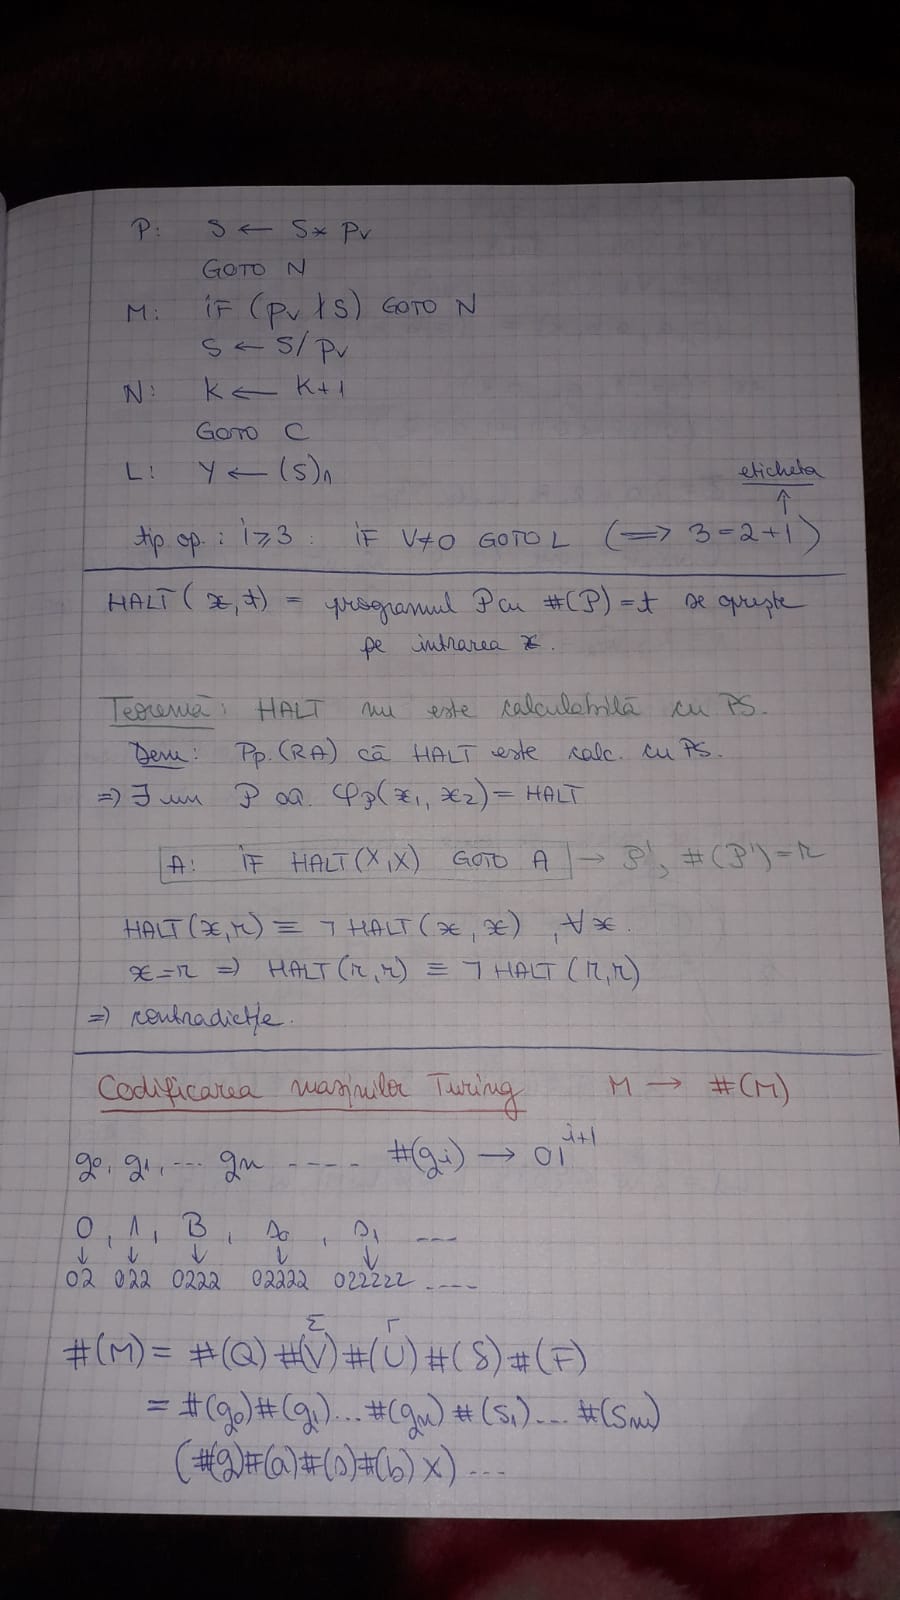 P: S ← S* Pv
GOTO N
M: IF (Pv ∤ S) GOTO N
S ← S/Pv
N: K ← K+1
GOTO C
L: Y ← (S)₁
eticheta
↑
tip op.: i≥3: IF V≠0 GOTO L (⟹ 3=2+1)
HALT(x,t) = programul P cu #(P)=t se oprește
pe intrarea x.
Teoremă: HALT nu este calculabilă cu PS.
Dem: Pp.(RA) că HALT este calc. cu PS.
⇒ ∃ un P a.î. φP(x₁, x₂) = HALT
A: IF HALT(X,X) GOTO A → P', #(P')=r
HALT(x,r) ≡ ¬ HALT(x,x), ∀x.
x=r ⇒ HALT(r,r) ≡ ¬ HALT(r,r)
⇒ contradicție.
Codificarea mașinilor Turing M → #(M)
q₀, q₁, ... qₙ ---- #(qi) → 01^{i+1}
0, 1, B, s₀, s₁ ---
↓ ↓ ↓ ↓ ↓
02 022 0222 02222 022222 ----
Σ Γ
#(M) = #(Q) #(V) #(U) #(δ) #(F)
= #(q₀)#(q₁)...#(qₙ) #(s₁)... #(sₘ)
(#(q)#(a)#(s)#(b) X) ...